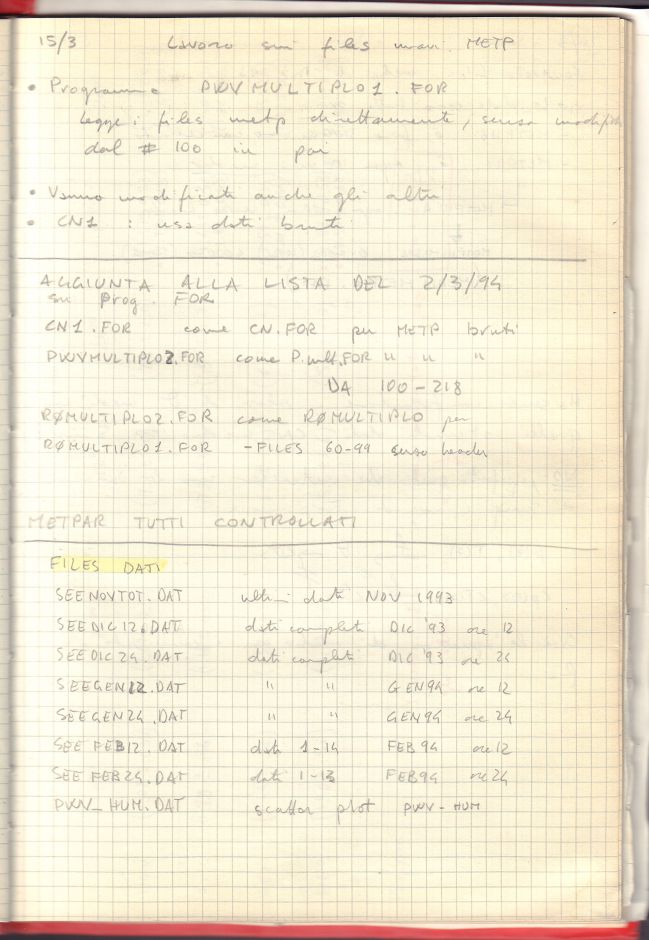 15/3 Lavoro sui files nuovi METP
• Programma PWVMULTIPLO1.FOR
legge i files metp direttamente, senza modifiche
dal # 100 in poi
• Vanno modificati anche gli altri
• CN1 : usa dati bruti
AGGIUNTA ALLA LISTA DEL 2/3/94
su prog. FOR
CN1.FOR come CN.FOR per METP bruti
PWVMULTIPLO2.FOR come P.mult.FOR " " "
DA 100-218
RØMULTIPLO2.FOR come RØMULTIPLO per
RØMULTIPLO1.FOR - FILES 60-99 senza header
METPAR TUTTI CONTROLLATI
FILES DATI
SEENOVTOT.DAT ultimi dati NOV 1993
SEEDIC12.DAT dati completi DIC '93 ore 12
SEEDIC24.DAT dati completi DIC '93 ore 24
SEEGEN12.DAT " " GEN94 ore 12
SEEGEN24.DAT " " GEN94 ore 24
SEEFEB12.DAT dati 1-14 FEB94 ore 12
SEEFEB24.DAT dati 1-13 FEB94 ore 24
PWV_HUM.DAT scatter plot PWV-HUM